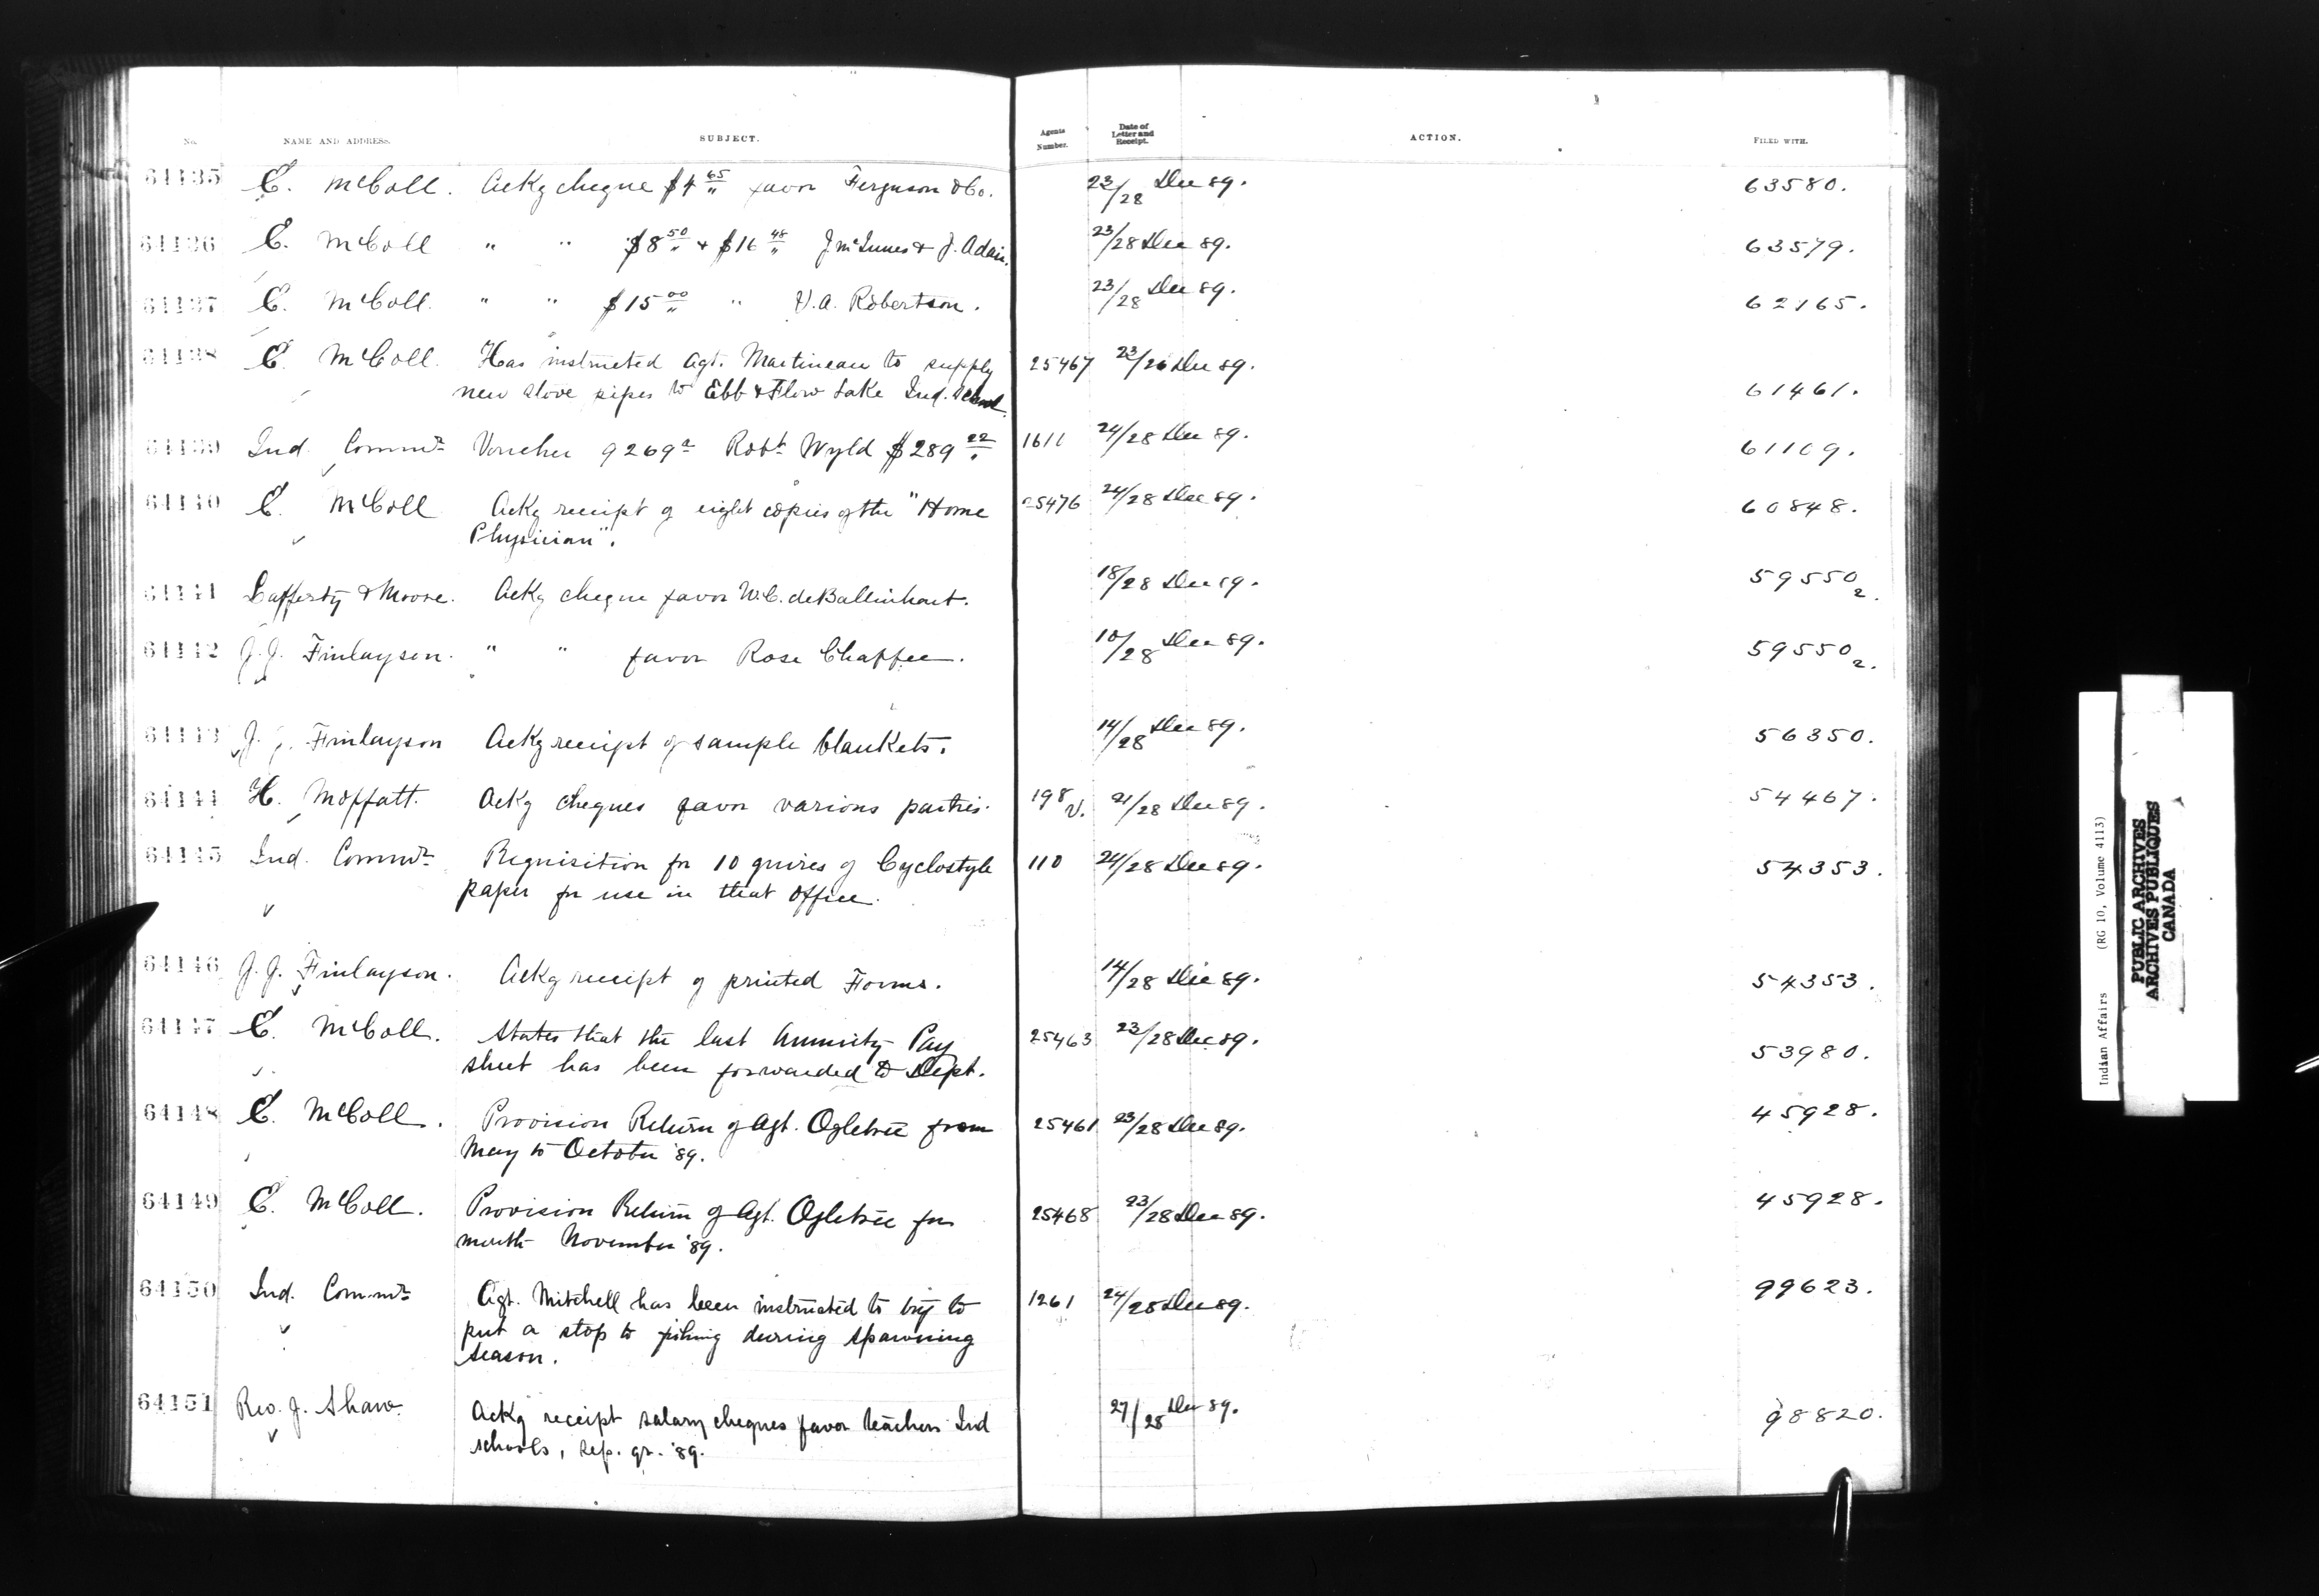 No. NAME AND ADDRESS. SUBJECT. Agents Number. Date of Letter and Receipt. ACTION. FILED WITH.
64135 E. McColl. Ackg cheque $4 65/" favor Ferguson & Co. 23/28 Dec 89. 63580.
64136 E. McColl " " $8 50/" & $16 48/" J McInnes & J. Adair. 23/28 Dec 89. 63579.
64137 E. McColl. " " $15 00/" " V.A. Robertson. 23/28 Dec 89. 62165.
64138 E. McColl. Has instructed Agt. Martineau to supply 25467 23/28 Dec 89.
new stove pipes to Ebb & Flow Lake Ind. School. 61461.
64139 Ind. Commr Voucher 9269a Robt Wyld $289 22 1611 24/28 Dec 89. 61109.
64140 E. McColl Ackg receipt of eight copies of the "Home 25476 24/28 Dec 89. 60848.
Physician".
64141 Lafferty & Moore. Ackg cheque favor W.C. deBallinhart. 18/28 Dec 89. 59550 2.
64142 J.J. Finlayson. " " favor Rose Chaffee. 10/28 Dec 89. 59550 2.
64143 J. J. Finlayson Ackg receipt of sample blankets. 14/28 Dec 89. 56350.
64144 H. Moffatt. Ackg cheques favor various parties. 198 V. 21/28 Dec 89. 54467.
64145 Ind. Commr Requisition for 10 quires of Cyclostyle 110 24/28 Dec 89. 54353.
paper for use in that Office.
64146 J.J. Finlayson. Ackg receipt of printed Forms. 14/28 Dec 89. 54353.
64147 E. McColl. States that the last Annuity Pay 25463 23/28 Dec 89. 53980.
sheet has been forwarded to Dept.
64148 E. McColl. Provision Return of Agt. Ogletree from 25461 23/28 Dec 89. 45928.
May to October '89.
64149 E. McColl. Provision Return of Agt. Ogletree for 25468 23/28 Dec 89. 45928.
month November '89.
64150 Ind. Commr Agt. Mitchell has been instructed to try to 1261 24/28 Dec 89. 99623.
put a stop to fishing during spawning
season.
64151 Rev. J. Shaw. Ackg receipt salary cheques favor teachers Ind 27/28 Dec 89. 98820.
schools, Sep. qr. '89.
Indian Affairs (RG 10, Volume 4113)
PUBLIC ARCHIVES
ARCHIVES PUBLIQUES
CANADA